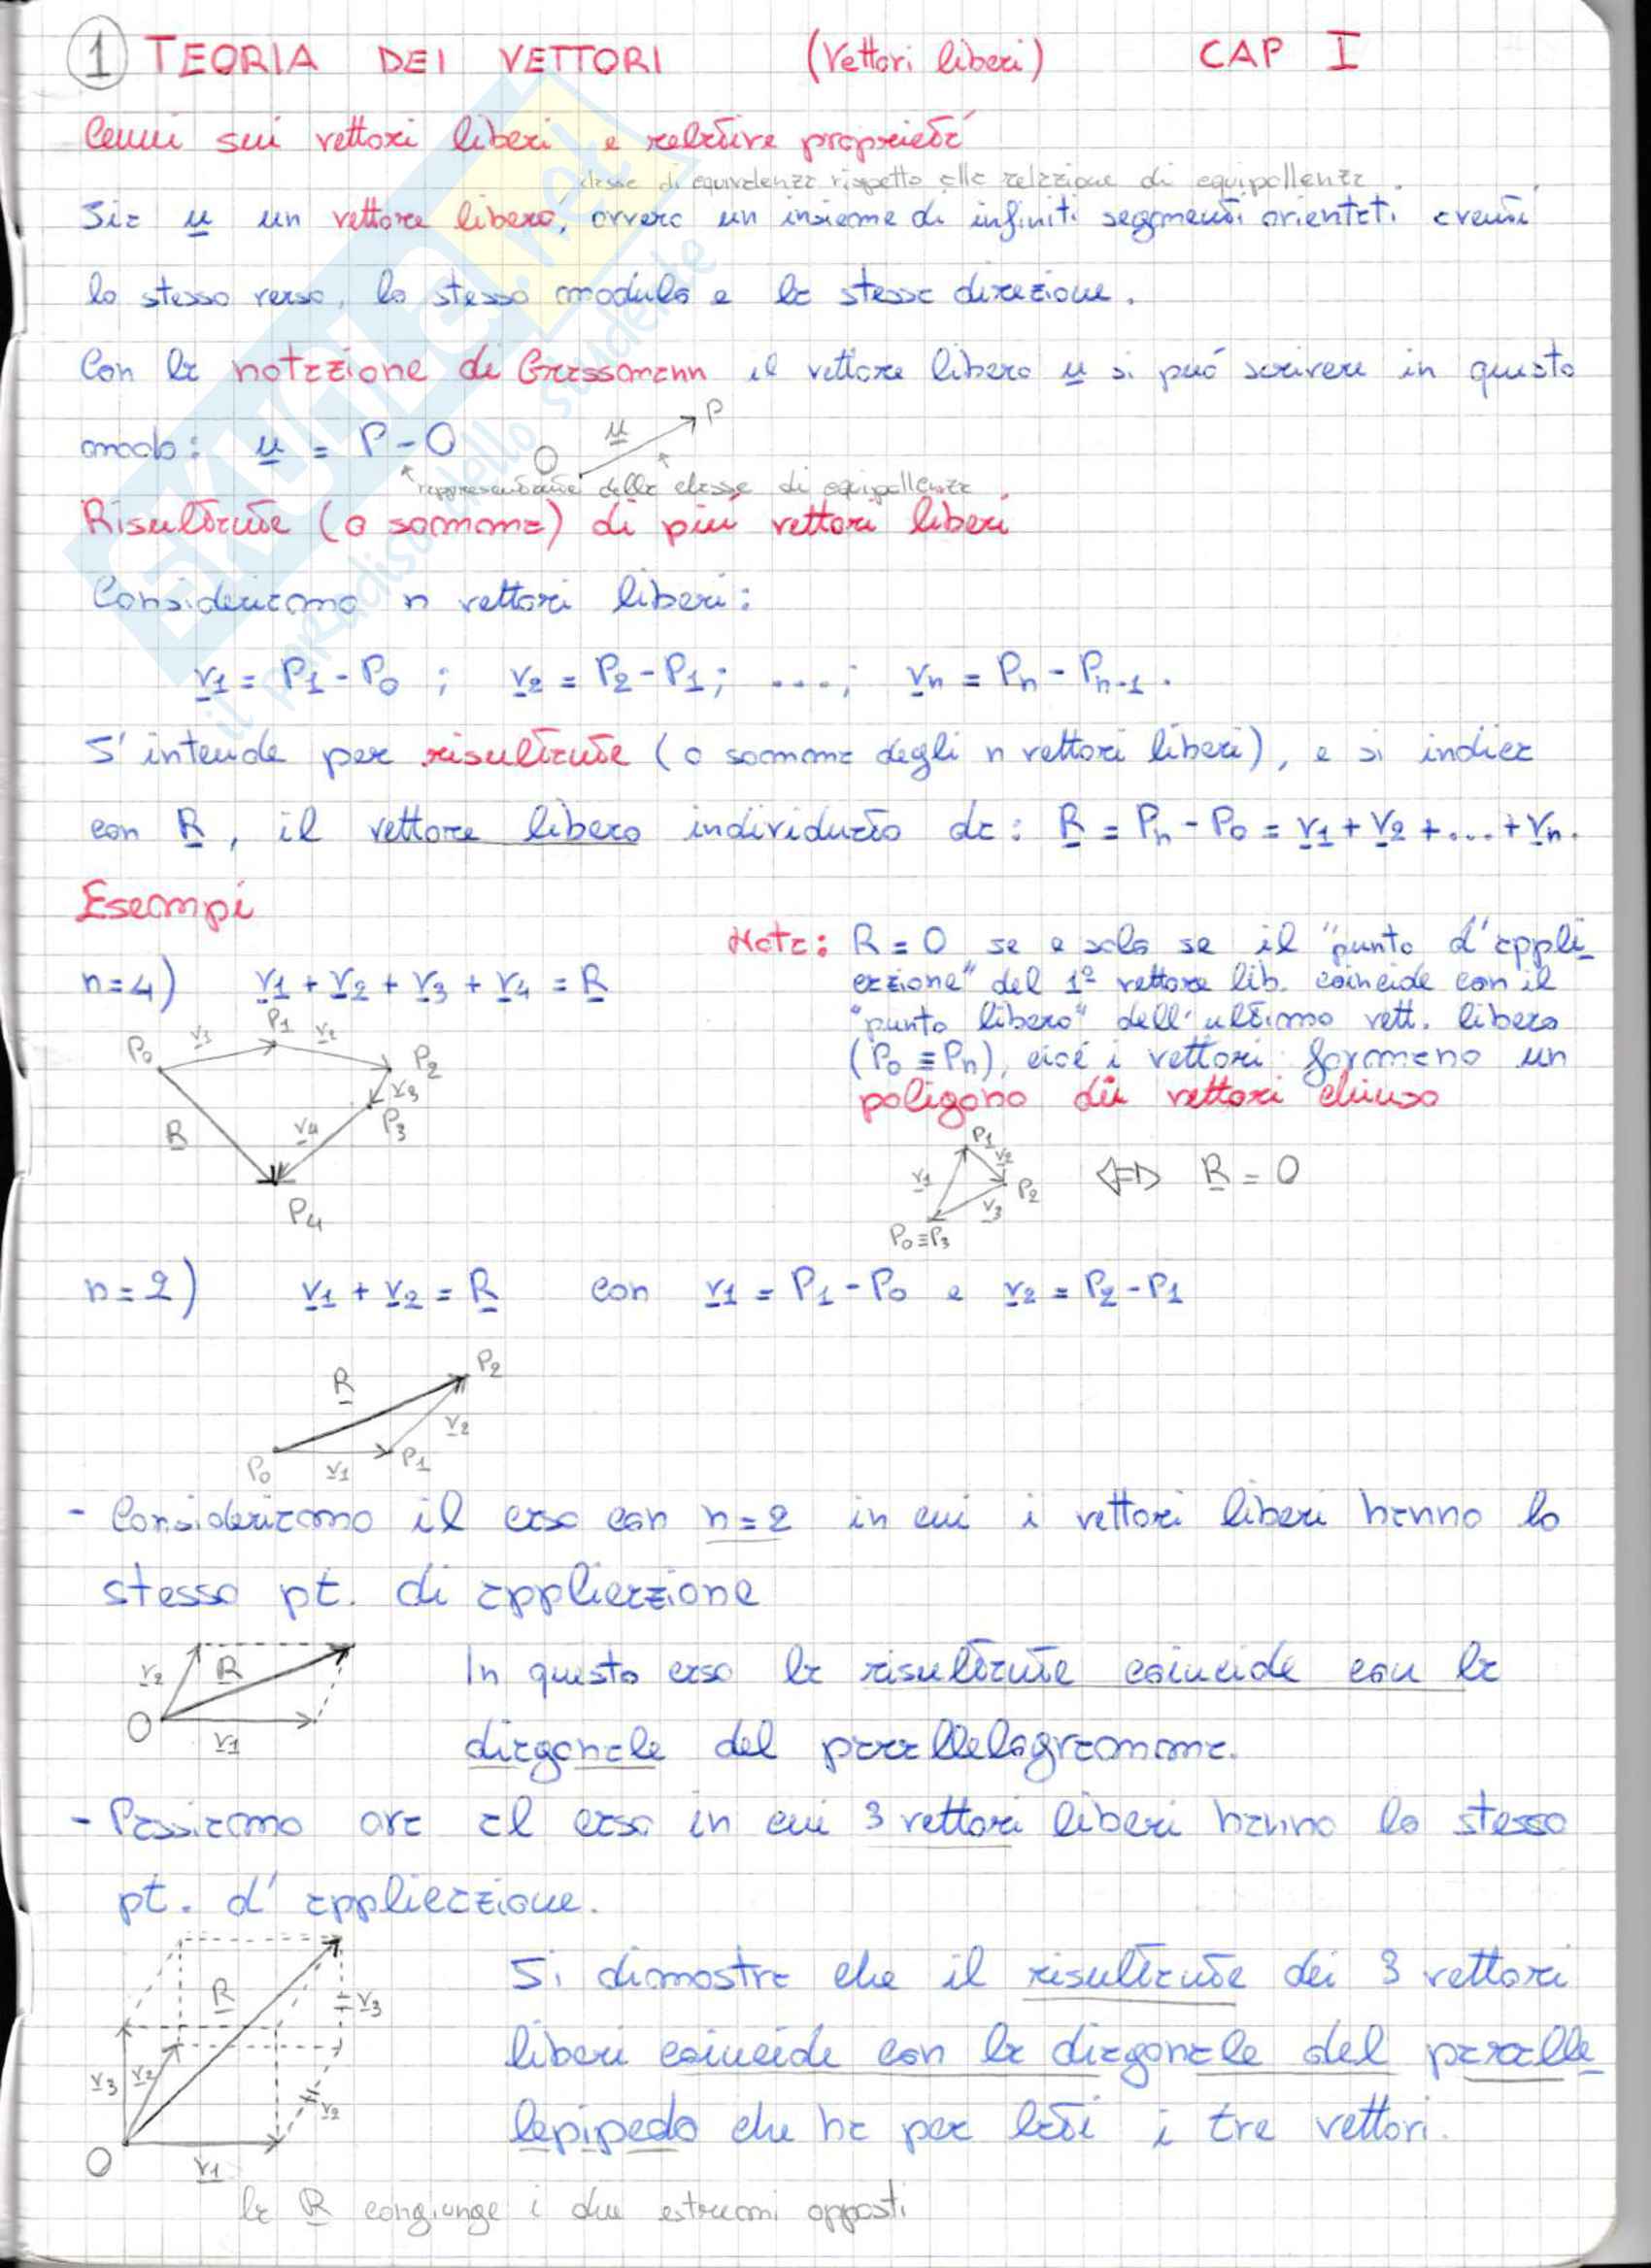 1 TEORIA DEI VETTORI (Vettori liberi) CAP I
Cenni sui vettori liberi e relative proprietà
classe di equivalenza rispetto alla relazione di equipollenza.
Sia u un vettore libero, ovvero un insieme di infiniti segmenti orientati aventi
lo stesso verso, lo stesso modulo e la stessa direzione.
Con la notazione di Grassmann il vettore libero u si può scrivere in questo
modo: u = P - O
O u P
rappresentante della classe di equipollenza
Risultante (o somma) di più vettori liberi
Consideriamo n vettori liberi:
v1 = P1 - P0 ; v2 = P2 - P1 ; ....; vn = Pn - Pn-1.
S'intende per risultante (o somma degli n vettori liberi), e si indica
con R, il vettore libero individuato da: R = Pn - P0 = v1 + v2 + ... + vn.
Esempi
n=4) v1 + v2 + v3 + v4 = R
P0 v1 P1 v2 P2
v3
P3
v4
R
P4
Nota: R = 0 se e solo se il "punto d'appli
cazione" del 1° vettore lib. coincide con il
"punto libero" dell'ultimo vett. libero
(P0 ≡ Pn), cioè i vettori formano un
poligono di vettori chiuso
P1
v1 v2 P2
v3
P0≡P3
⇔ R = 0
n=2) v1 + v2 = R con v1 = P1 - P0 e v2 = P2 - P1
R P2
v2
P0 v1 P1
- Consideriamo il caso con n=2 in cui i vettori liberi hanno lo
stesso pt. di applicazione
v2 R
O v1
In questo caso la risultante coincide con la
diagonale del parallelogramma.
- Passiamo ora al caso in cui 3 vettori liberi hanno lo stesso
pt. d'applicazione.
R v3
v3 v2 v2
O v1
Si dimostra che il risultante dei 3 vettori
liberi coincide con la diagonale del paralle
lepipedo che ha per lati i tre vettori.
la R congiunge i due estremi opposti
SKUOLA.net
il paradiso dello studente